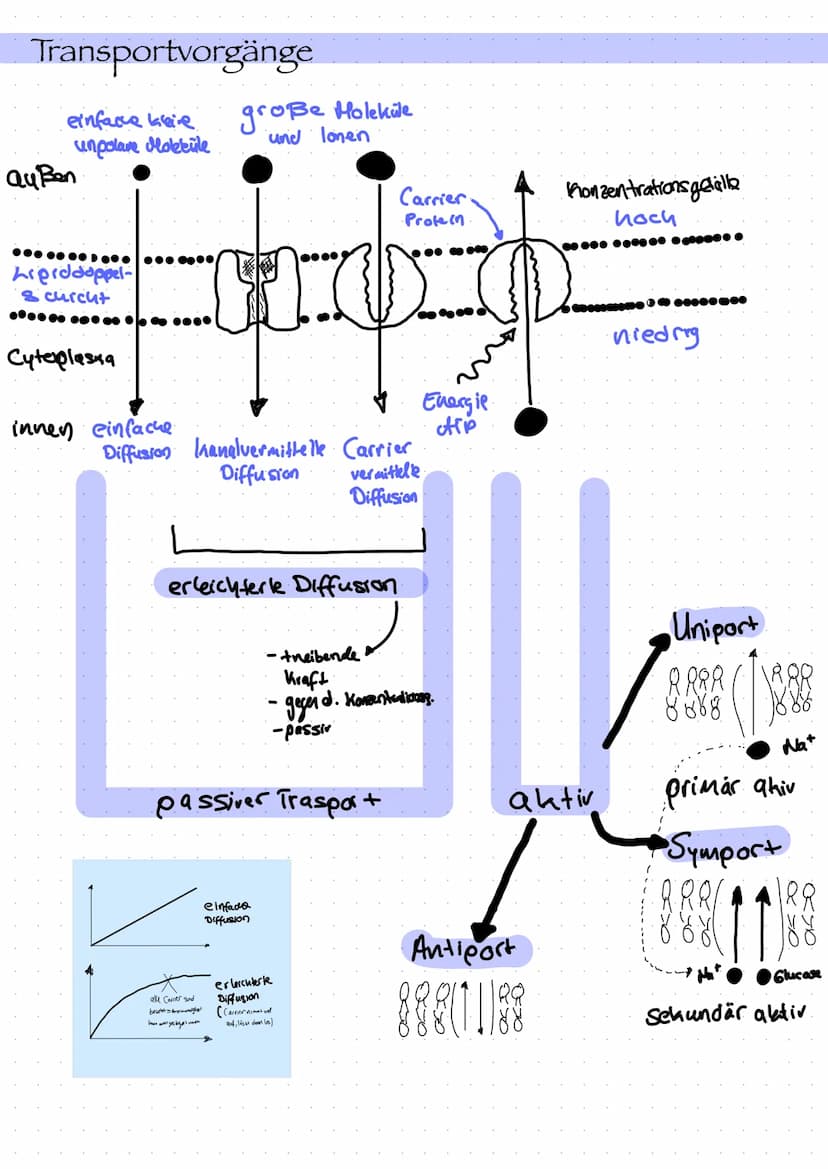 Transportvorgänge
einfache kleine
unpolare Moleküle
große Moleküle
und Ionen
außen
Carrier
Protein
Konzentrationsgefälle
hoch
Lipiddoppel-
schicht
niedrig
Cytoplasma
Energie
ATP
innen
einfache
Diffusion
kanalvermittelte
Diffusion
Carrier
vermittelte
Diffusion
erleichterte Diffusion
- treibende
Kraft
- gegen d.
- passiv
passiver Trasport
aktiv
Uniport
Na⁺
primär aktiv
Symport
Na⁺
Glucose
sekundär aktiv
Antiport
einfache
Diffusion
erleichterte
Diffusion
alle Carrier sind